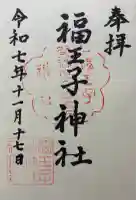 奉拝
福王子神社
令和七年十一月十七日